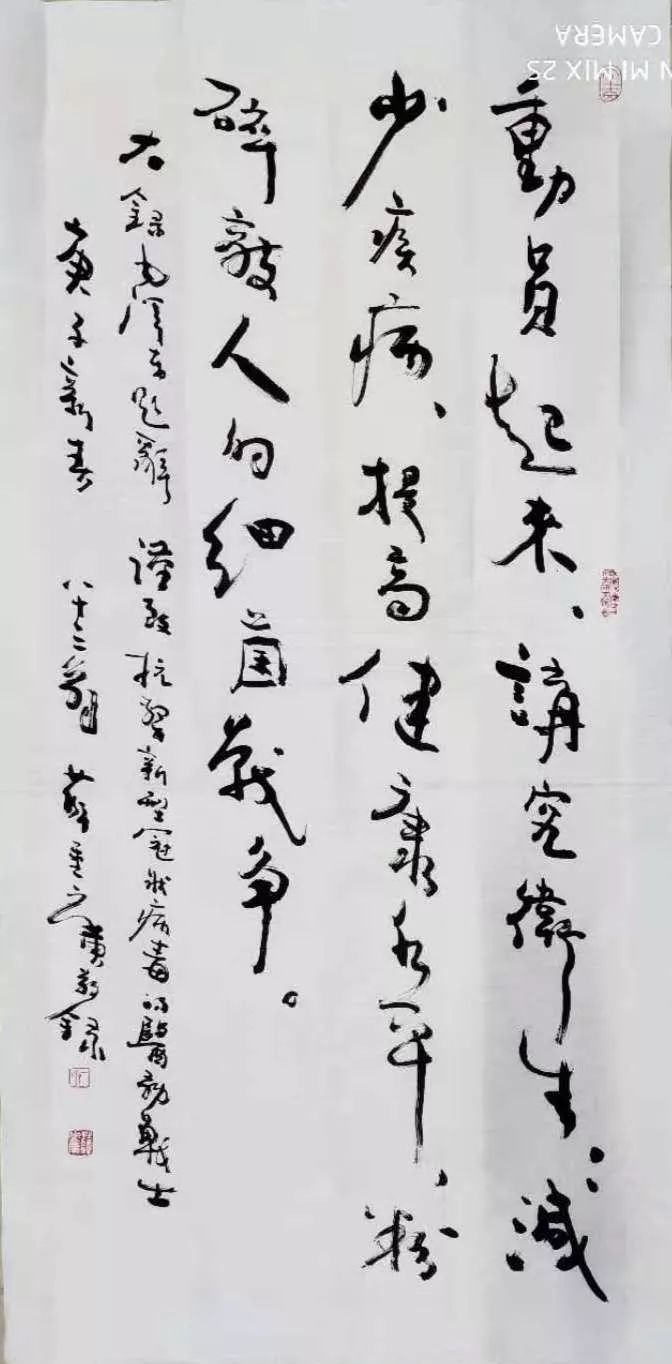 動員起来、講究衛生、減
少疾病、提高健康水平、粉
碎敵人的細菌戰争。
右錄毛澤东題辭 謹致抗擊新型冠狀病毒的醫務戰士
庚子新春 八十二翁 敬錄
N MI MIX 2S
CAMERA